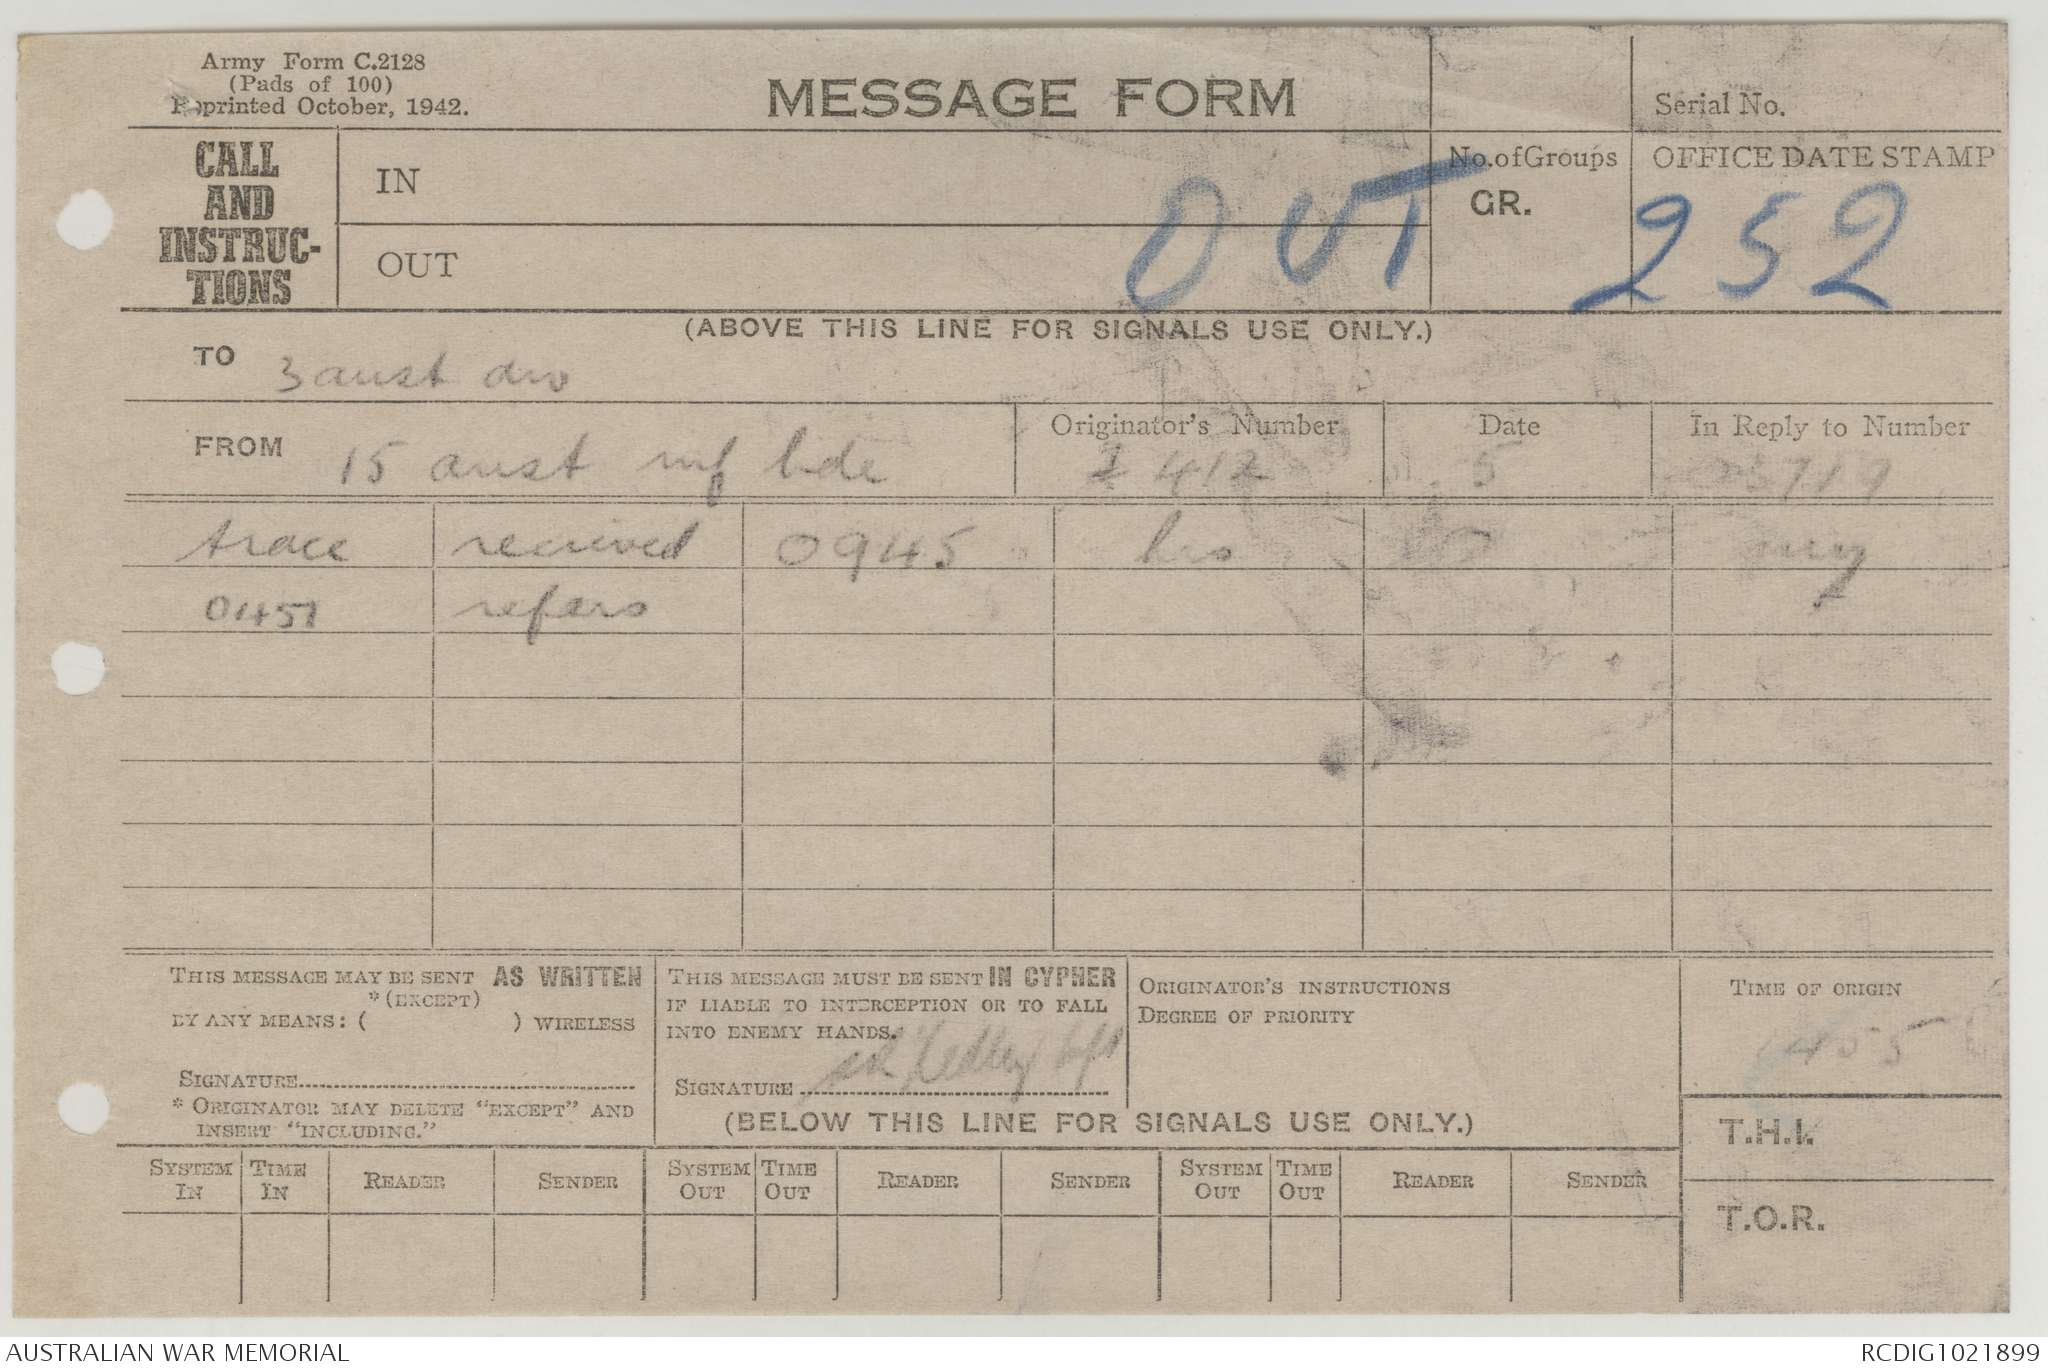 Army Form C.2128
(Pads of 100)
Reprinted October, 1942.
MESSAGE FORM
Serial No.
CALL
AND
INSTRUC-
TIONS
IN
OUT
No. of Groups
GR.
OFFICE DATE STAMP
OUT 252
(ABOVE THIS LINE FOR SIGNALS USE ONLY.)
TO 3 aust div
FROM 15 aust inf bde
Originator's Number
412
Date
5
In Reply to Number
trace recieved 0945 hrs my
0457 refers
THIS MESSAGE MAY BE SENT AS WRITTEN
*(EXCEPT)
BY ANY MEANS: ( ) WIRELESS
SIGNATURE
* ORIGINATOR MAY DELETE "EXCEPT" AND
INSERT "INCLUDING."
THIS MESSAGE MUST BE SENT IN CYPHER
IF LIABLE TO INTERCEPTION OR TO FALL
INTO ENEMY HANDS.
SIGNATURE
ORIGINATOR'S INSTRUCTIONS
DEGREE OF PRIORITY
TIME OF ORIGIN
1455
(BELOW THIS LINE FOR SIGNALS USE ONLY.)
T.H.I.
T.O.R.
SYSTEM IN
TIME IN
READER
SENDER
SYSTEM OUT
TIME OUT
READER
SENDER
SYSTEM OUT
TIME OUT
READER
SENDER
AUSTRALIAN WAR MEMORIAL
RCDIG1021899